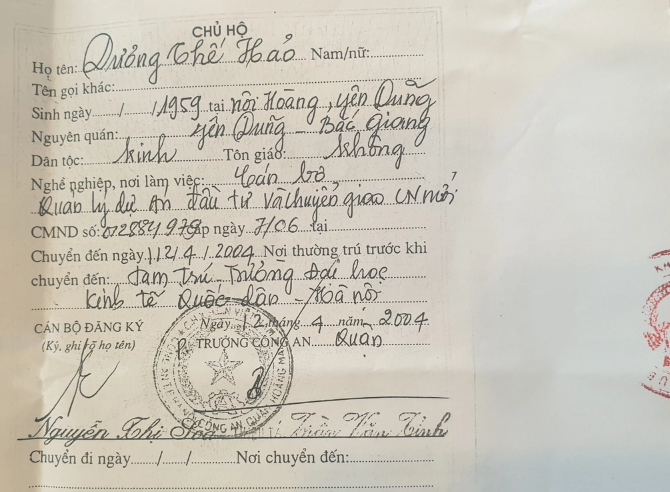 CHỦ HỘ
Họ tên: Dương Thế Hảo Nam/nữ:
Tên gọi khác:
Sinh ngày / / 1959 tại Nội Hoàng, Yên Dũng
Nguyên quán: Yên Dũng - Bắc Giang
Dân tộc: Kinh Tôn giáo: Không
Nghề nghiệp, nơi làm việc: Cán bộ
Quản lý dự án đầu tư và chuyển giao CN mới
CMND số: 012884979 cấp ngày 7/06 tại
Chuyển đến ngày 12/4/2004 Nơi thường trú trước khi
chuyển đến: Tạm trú - Trường Đại học
Kinh tế Quốc dân - Hà nội
CÁN BỘ ĐĂNG KÝ Ngày 12 tháng 4 năm 2004
(Ký, ghi rõ họ tên) TRƯỞNG CÔNG AN Quận
CÔNG AN QUẬN HOÀNG MAI
Nguyễn Thị Trần Văn Tỉnh
Chuyển đi ngày / / Nơi chuyển đến: